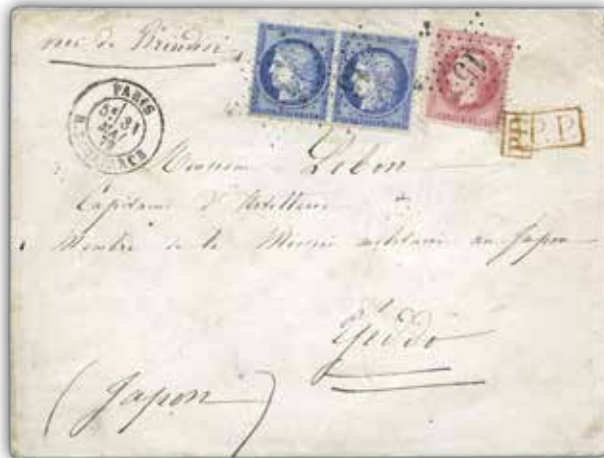 voie de Brindisi
PARIS
31
MAI
PP
P.D
15
Monsieur Lebon
Capitaine d'Artillerie
Membre de la Mission militaire au Japon
Yeddo
(Japon)